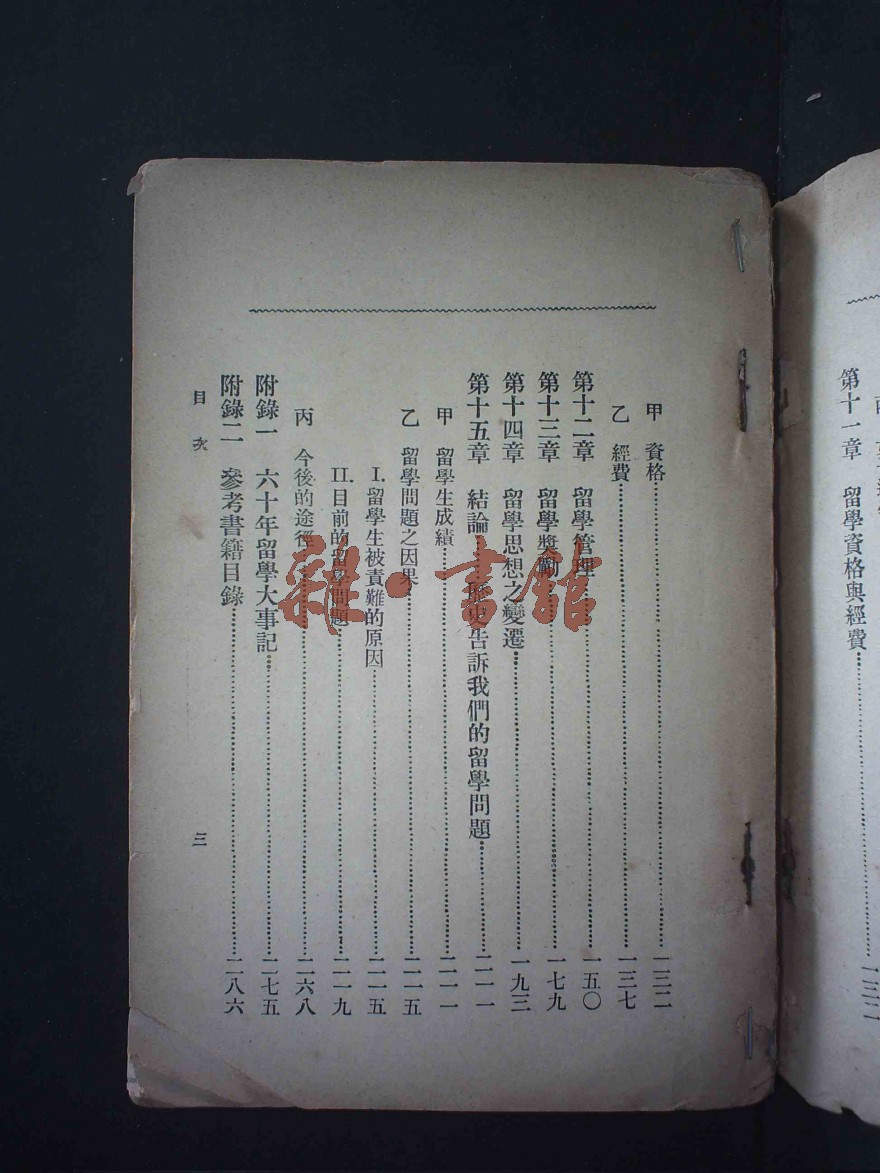 第十一章　留學資格與經費……一三二
甲　資格……一三二
乙　經費……一三七
第十二章　留學管理……一五〇
第十三章　留學獎勵……一七九
第十四章　留學思想之變遷……一九三
第十五章　結論　歷史告訴我們的留學問題……二一一
甲　留學生成績……二一一
乙　留學問題之因果……二一五
I.留學生被責難的原因……二一五
II.目前的留學問題……二一九
丙　今後的途徑……二六八
附錄一　六十年留學大事記……二七五
附錄二　參考書籍目錄……二八六
目次　三
雜·書館